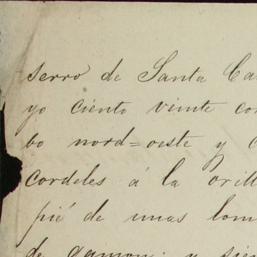 serro de Santa Ca
yo ciento veinte con
bo nord=oeste y
cordeles á la orill
pié de unas lom
de